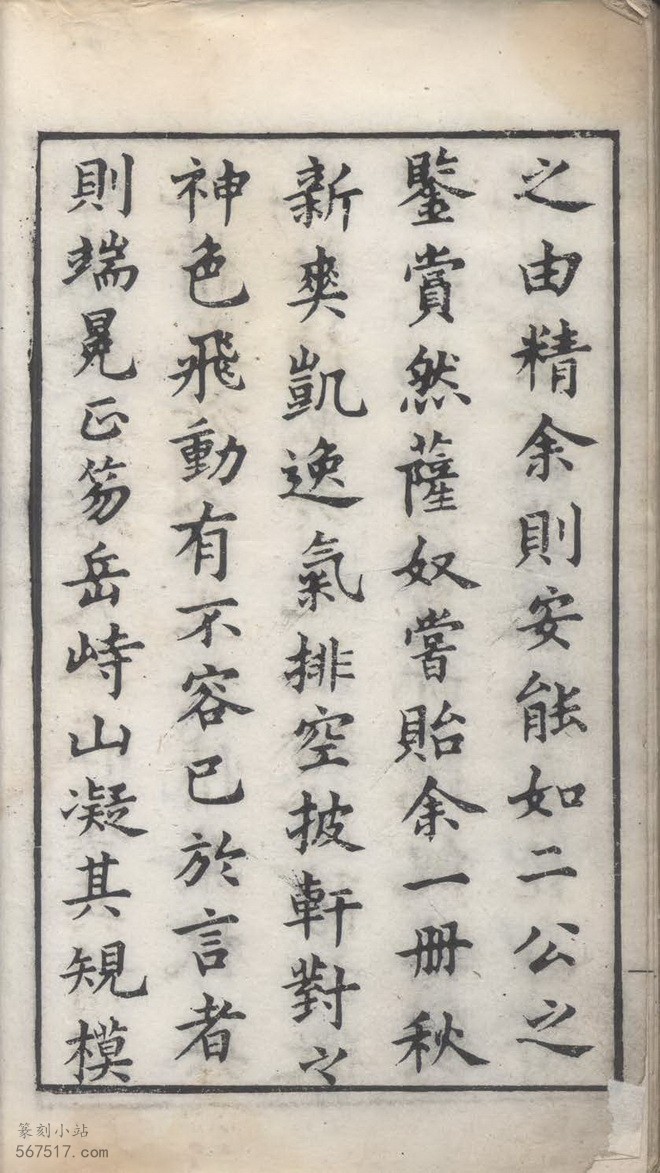 之由精余則安能如二公之
鑒賞然薩奴嘗貽余一冊秋
新爽凱逸氣排空披軒對之
神色飛動有不容已於言者
則端冕正笏岳峙山凝其規模
篆刻小站
567517.com